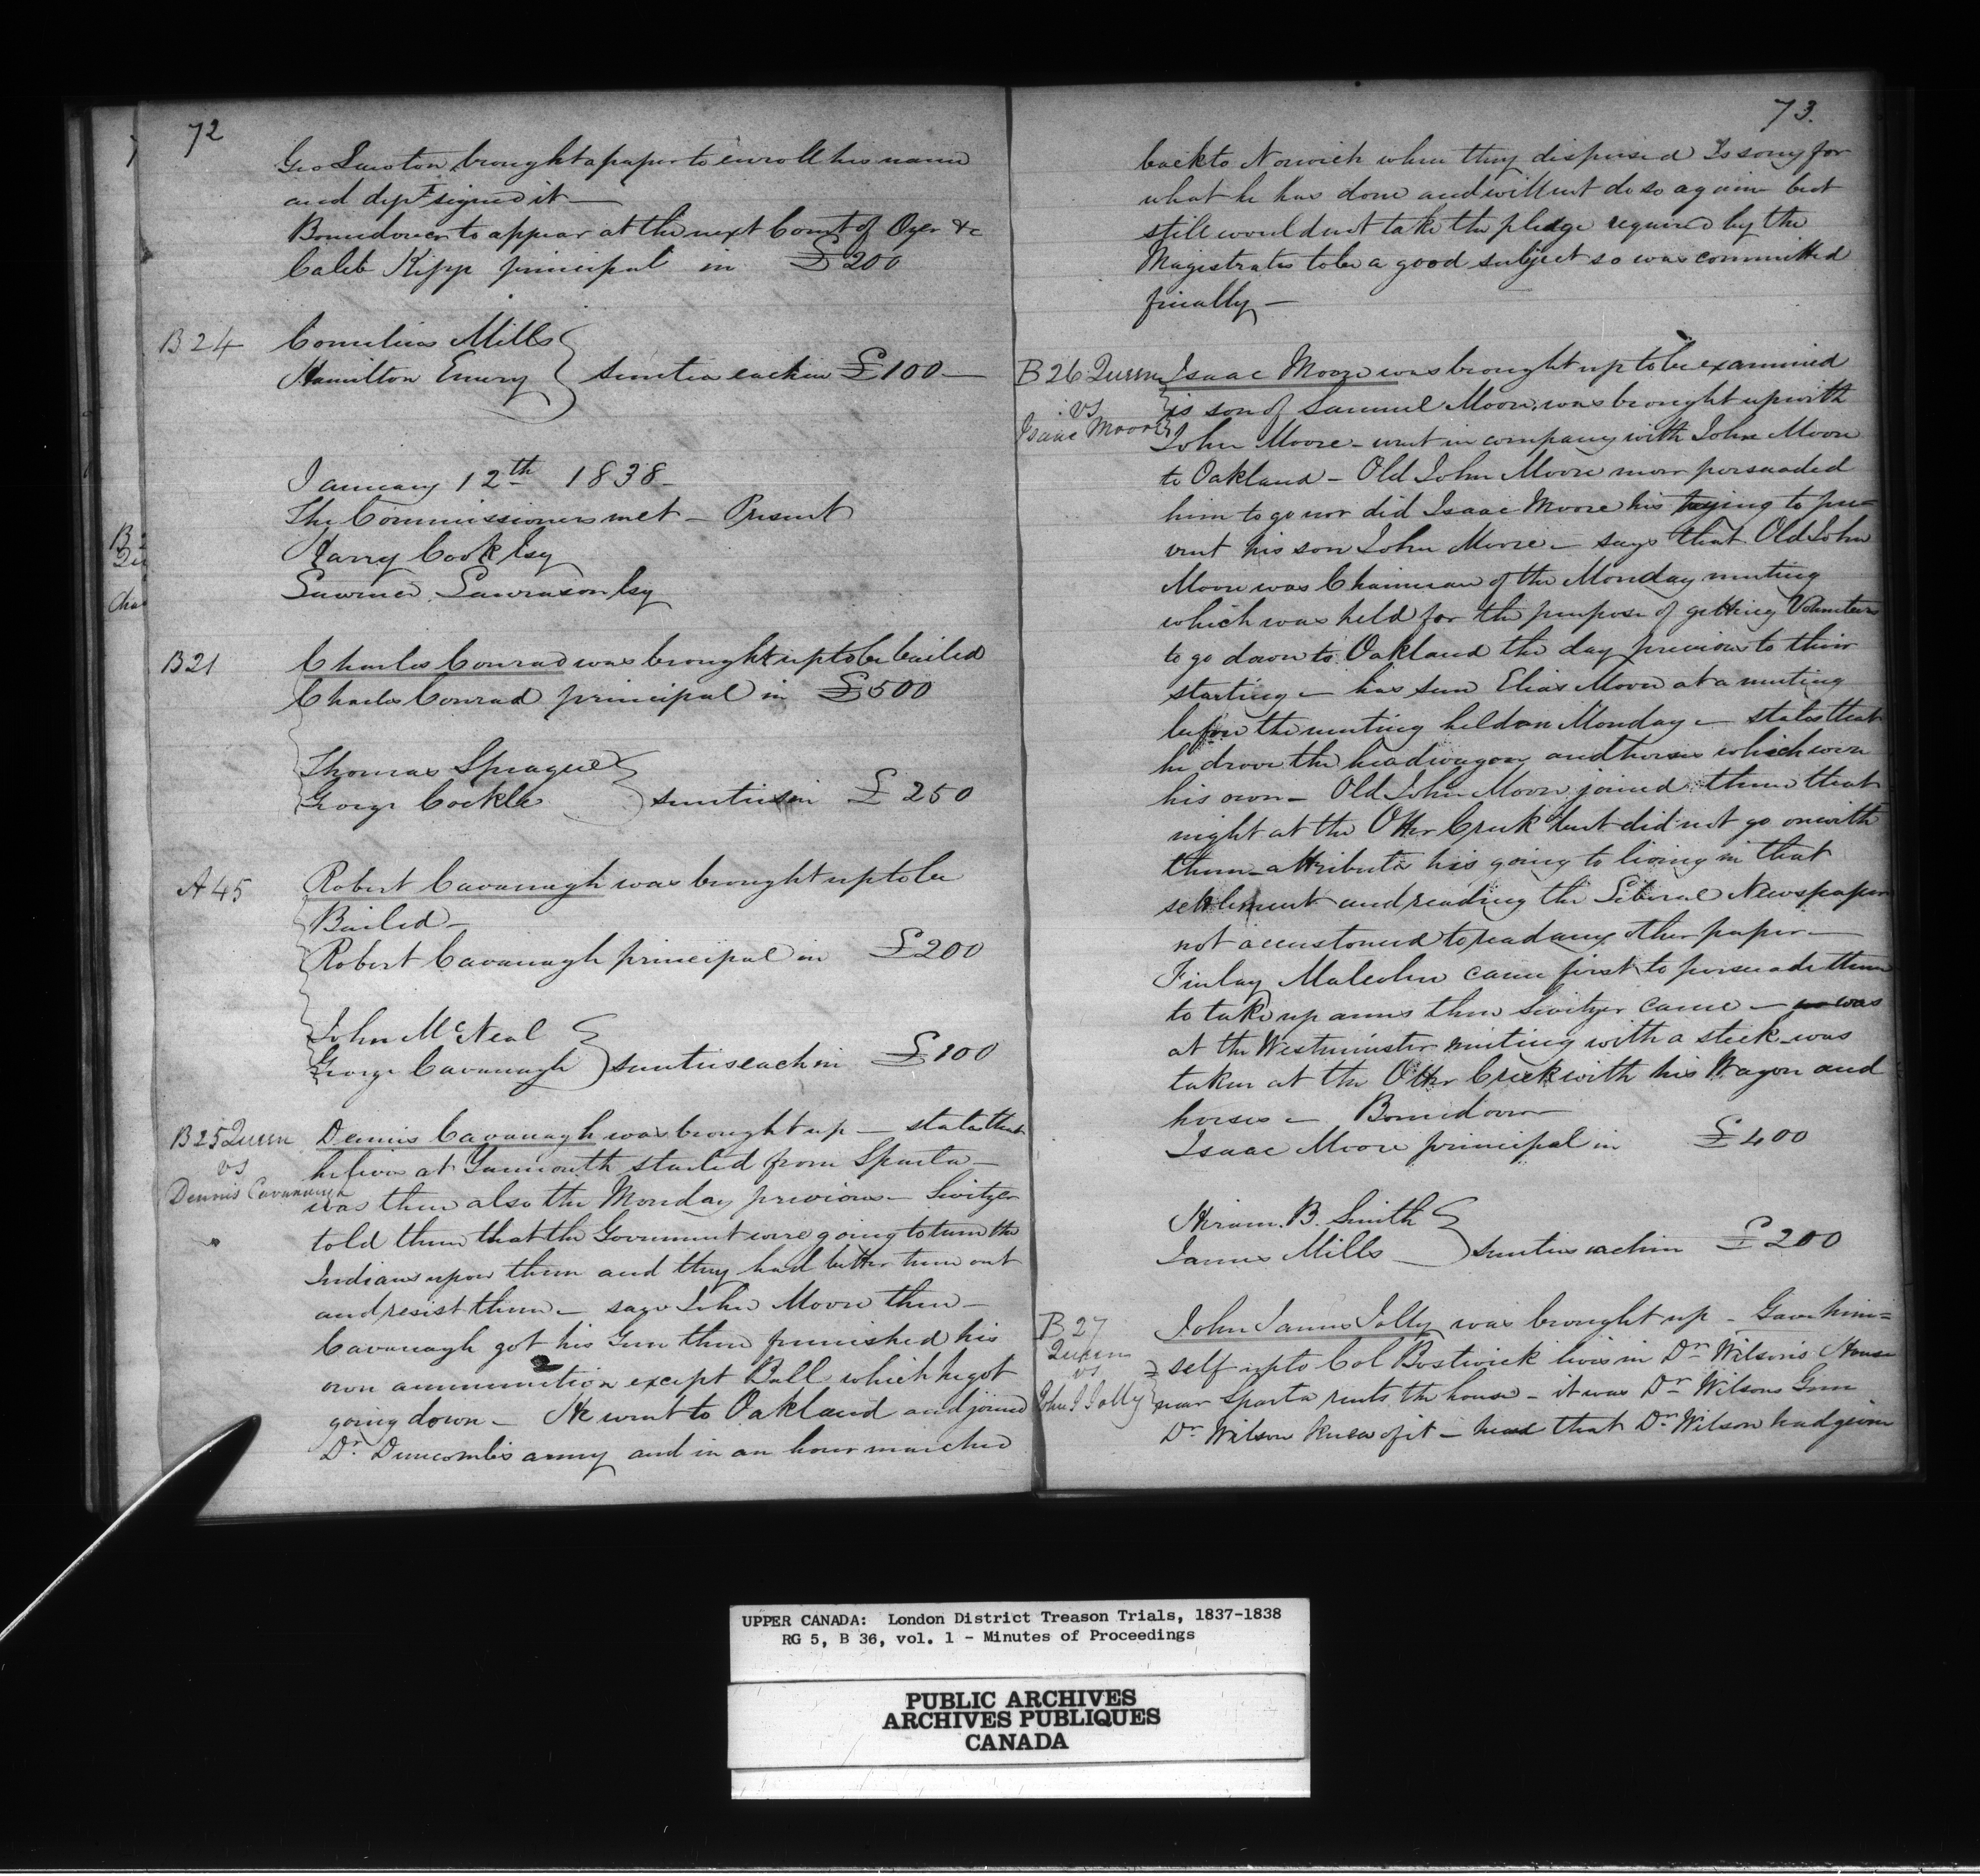 72
Geo Lawton brought a paper to enroll his name
and dept signed it —
Boundover to appear at the next Court of Oyer &c
Caleb Kipp principal in £200
B24 Cornelius Mills
Hamilton Emery } sureties each in £100 —
January 12th 1838 —
The Commissioners met — Present
Harry Cook Esq
Lawrence Lawrason Esq
B21 Charles Conrad was brought up to be bailed
Charles Conrad principal in £500
Thomas Sprague
George Cockle } sureties in £250
A45 Robert Cavanagh was brought up to be
Bailed —
Robert Cavanagh principal in £200
John McNeal
George Cavanagh } sureties each in £100
B25 Queen vs Dennis Cavanaugh
Dennis Cavanagh was brought up — states that
he lives at Yarmouth started from Sparta —
was there also the Monday previous — Switzer
told them that the Government were going to turn the
Indians upon them and they had better turn out
and resist them — says John Moore then —
Cavanagh got his Gun there furnished his
own ammunition except Ball which he got
going down — He went to Oakland and joined
Dr. Duncombe's army and in an hour marched
73.
back to Norwich when they dispersed Is sorry for
what he has done and will not do so again but
still would not take the pledge required by the
Magistrates to be a good subject so was committed
finally —
B26 Queen vs Isaac Moore
Isaac Moore was brought up to be examined
is son of Samuel Moore, was brought up with
John Moore — went in company with John Moore
to Oakland — Old John Moore never persuaded
him to go nor did Isaac Moore his trying to pre-
vent his son John Moore — says that Old John
Moore was Chairman of the Monday meeting
which was held for the purpose of getting Volunteers
to go down to Oakland the day previous to their
starting — has seen Elias Moore at a meeting
before the meeting held on Monday — states that
he drove the head wagon and horses which were
his own — Old John Moore joined them that
night at the Otter Creek but did not go on with
them — attributes his going to living in that
settlement and reading the Liberal Newspaper
not accustomed to read any other paper —
Finlay Malcolm came first to persuade them
to take up arms then Switzer came — was
at the Westminster meeting with a stick — was
taken at the Otter Creek with his Wagon and
horses — Boundover
Isaac Moore principal in £400
Hiram. B. Smith
James Mills } sureties each in £200
B27 Queen vs John J Jolly
John James Jolly was brought up — Gave him=
=self up to Col Bostwick lives in Dr. Wilson's House
near Sparta rents the house — it was Dr. Wilsons Gun
Dr. Wilson knew of it — that Dr. Wilson had given
B 2
Qu
Cha
UPPER CANADA: London District Treason Trials, 1837-1838
RG 5, B 36, vol. 1 - Minutes of Proceedings
PUBLIC ARCHIVES
ARCHIVES PUBLIQUES
CANADA